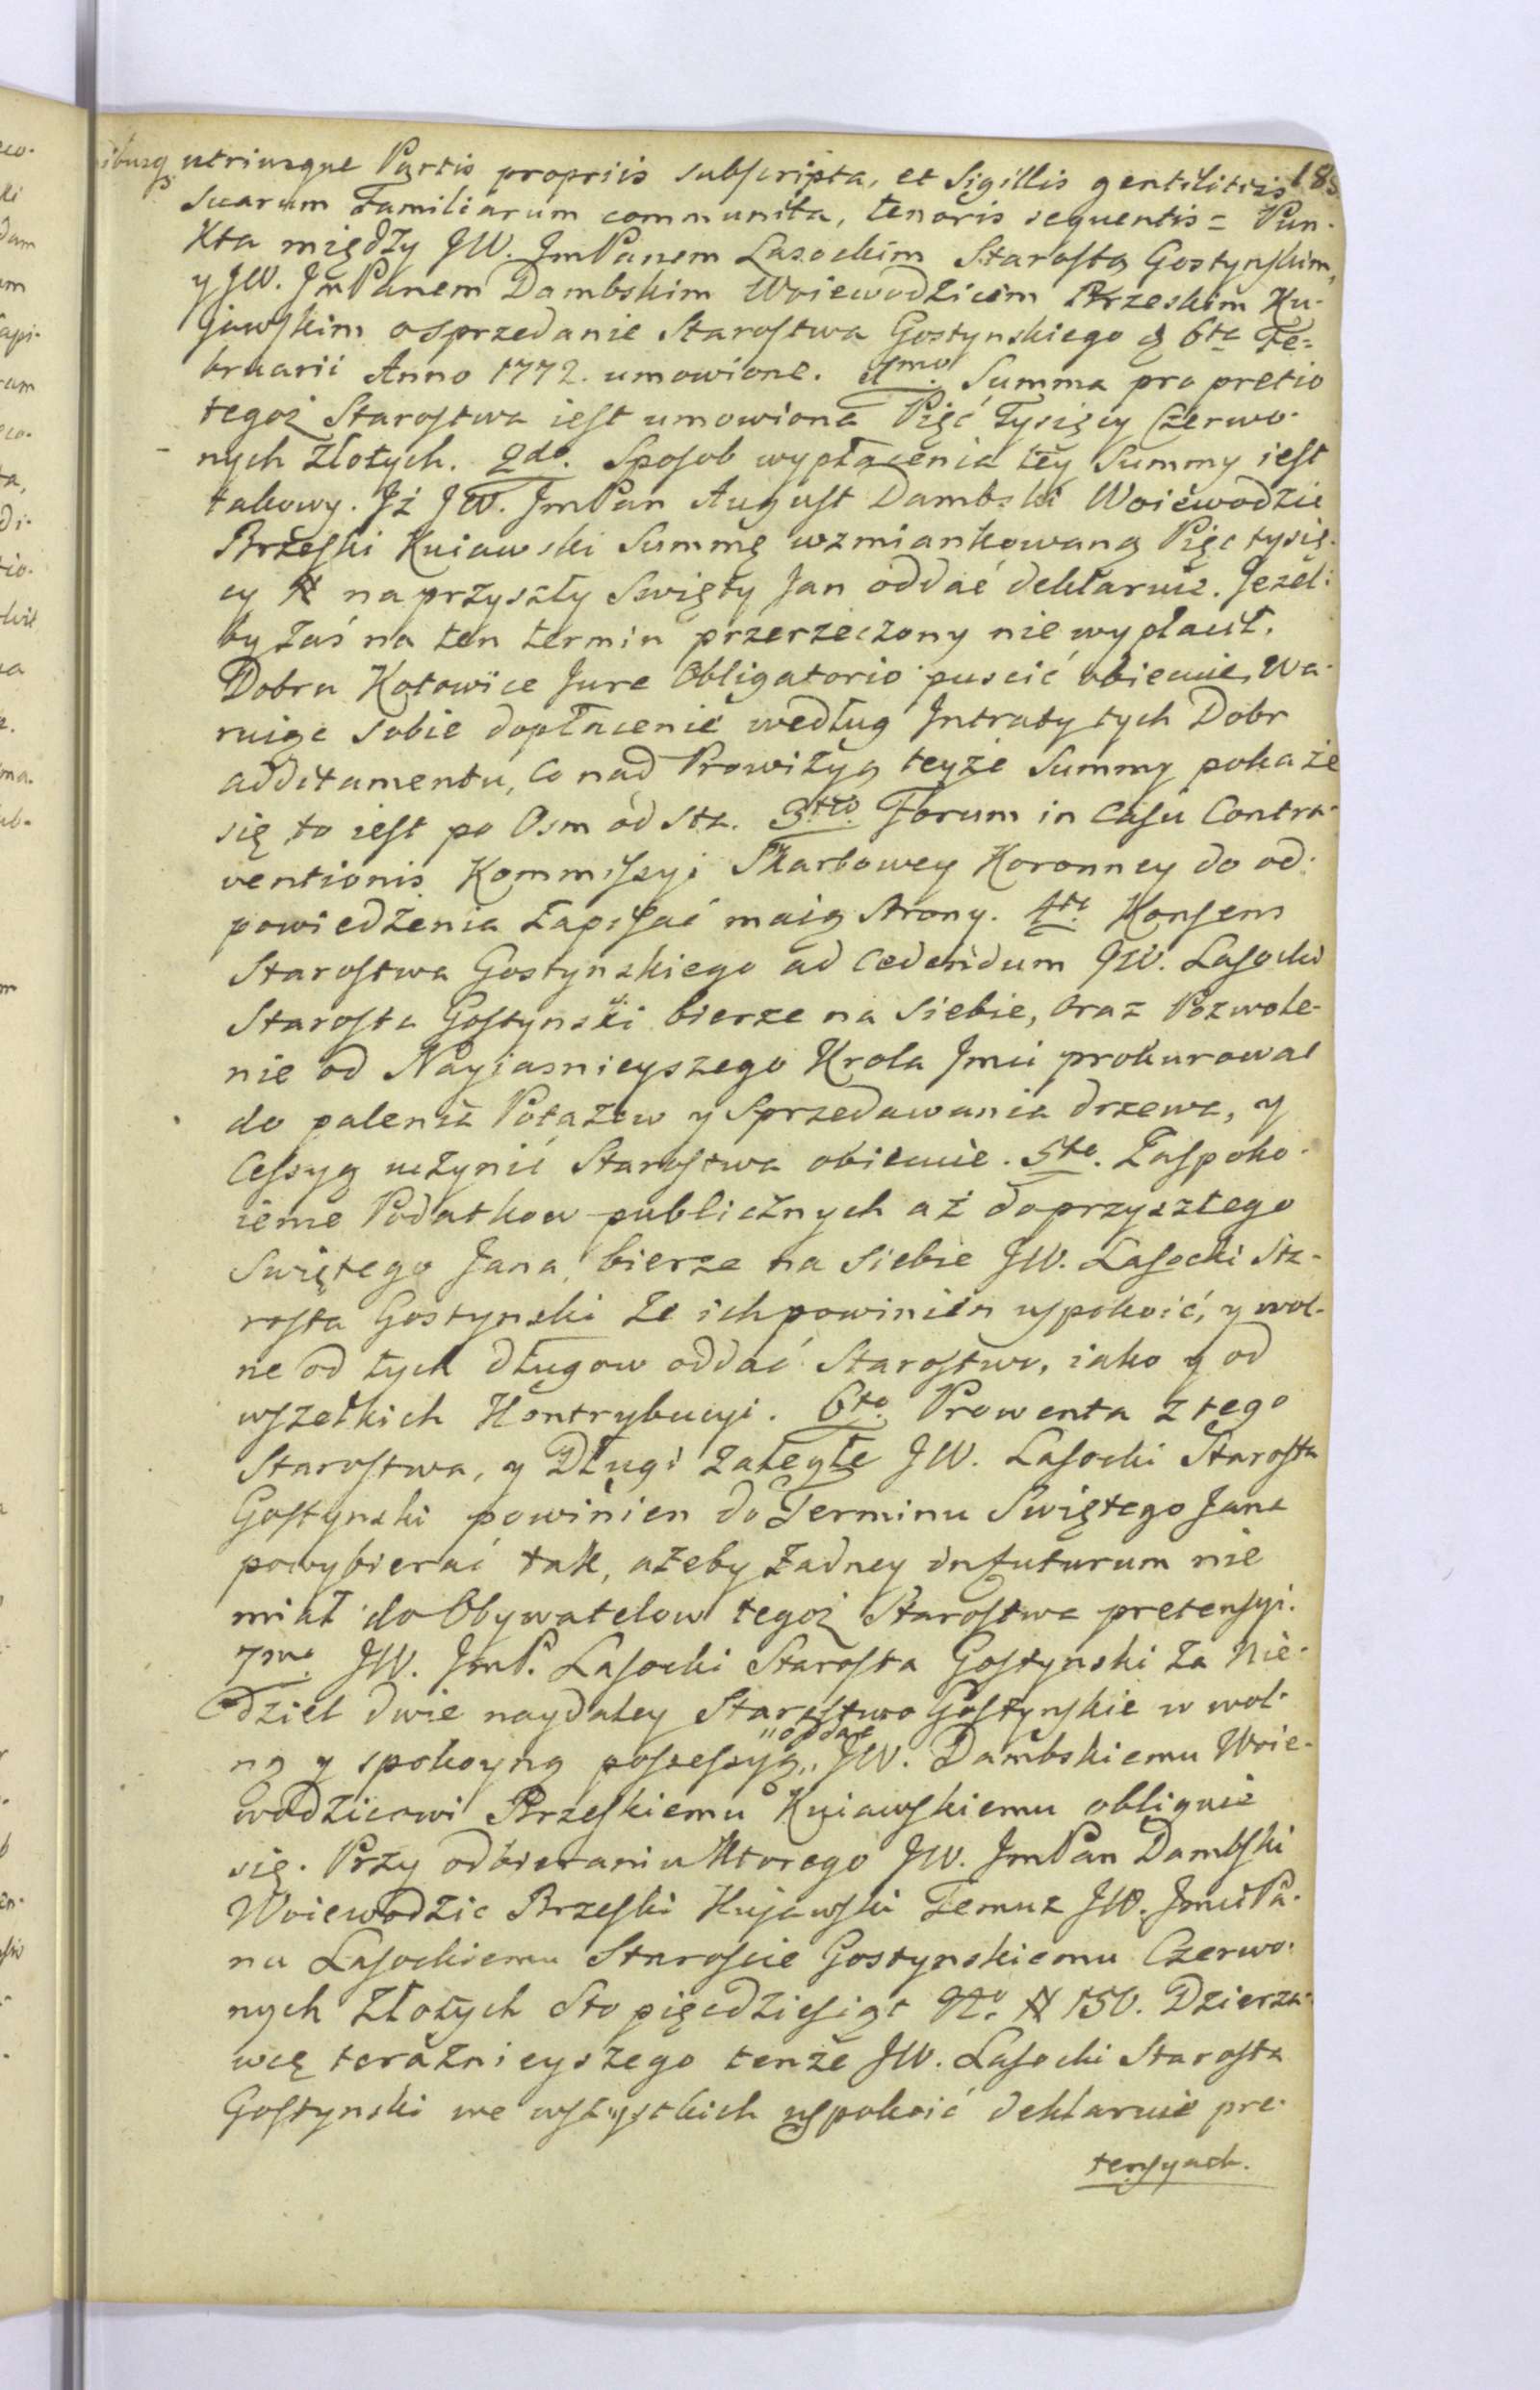 utriusque Partis propriis subscripta, et Sigillis gentilitiis 185
Suarum Familiarum communita, tenoris sequentis = Pun-
kta między JW. JmPanem Lasockim Starostą Gostynskim,
y JW. JmPanem Dambskim Woiewodzicem Brzeskim Ku-
jawskim o sprzedanie Starostwa Gostynskiego d 6ta Fe-
bruarii Anno 1772. umowione. 1mo. Summa pro pretio
tegoż Starostwa iest umowiona Pięć Tysięcy Czerwo-
nych Złotych. 2do. Sposob wypłacenia tey Summy iest
takowy. Jż JW. JmPan August Dambski Woiewodzic
Brzeski Kuiawski Summę wzmiankowaną Pięc tysię-
cy # na przyszły Swięty Jan oddać deklaruie. Jezeli
by zaś na ten termin przerzeczony nie wypłacił,
Dobra Kotowice Jure Obligatorio puscić obiecuie, Wa-
ruiąc sobie dopłacenie według Jntraty tych Dobr
additamentu, co nad Prowizyą teyże Summy pokaże
się to iest po Osm od sta. 3tio. Forum in Casu Contra-
ventionis Kommissyi Skarbowey Koronney do od-
powiedzenia Zapisać maią strony. 4to. Konsens
Starostwa Gostynskiego ad cedendum JW. Lasocki
Starosta Gostynski bierze na siebie, oraz Pozwole-
nie od Nayiasnieyszego Krola Jmci prokurować
do palenia Potazow y Sprzedawania drzewa, y
Cessyą uczynić Starostwa obiecuie. 5to. Zaspoko-
ienie Podatkow publicznych aż do przyszłego
Swiętego Jana, bierze na siebie JW. Lasocki Sta-
rosta Gostynski ze ich powinien uspokoić, y wol-
ne od tych długow oddać Starostwo, iako y od
wszelkich Kontrybucyi. 6to. Prowenta z tego
Starostwa, y Długi zaległe JW. Lasocki Starosta
Gostynski powinien do Terminu Swiętego Jana
powybierać tak, ażeby żadney in futurum nie
miał do Obywatelow tegoż Starostwa pretensyi.
7mo JW. JmP. Lasocki Starosta Gostynski za Nie-
dziel dwie naydaley Starostwo Gostynskie w wol-
ną y spokoyną possessyą "oddać" JW. Dambskiemu Woie-
wodzicowi Brzeskiemu Kuiawskiemu obliguie
się. Przy odbieraniu Ktorego JW. JmPan Dambski
Woiewodzic Brzeski Kujawski Temuz JW. Jmci Pa-
nu Lasockiemu Staroscie Gostynskiemu Czerwo-
nych Złotych Sto pięcdziesiąt No. # 150. Dzierza-
wcę teraznieyszego tenże JW. Lasocki Starosta
Gostynski we wszystkich uspokoić deklaruie pre-
tensyach.